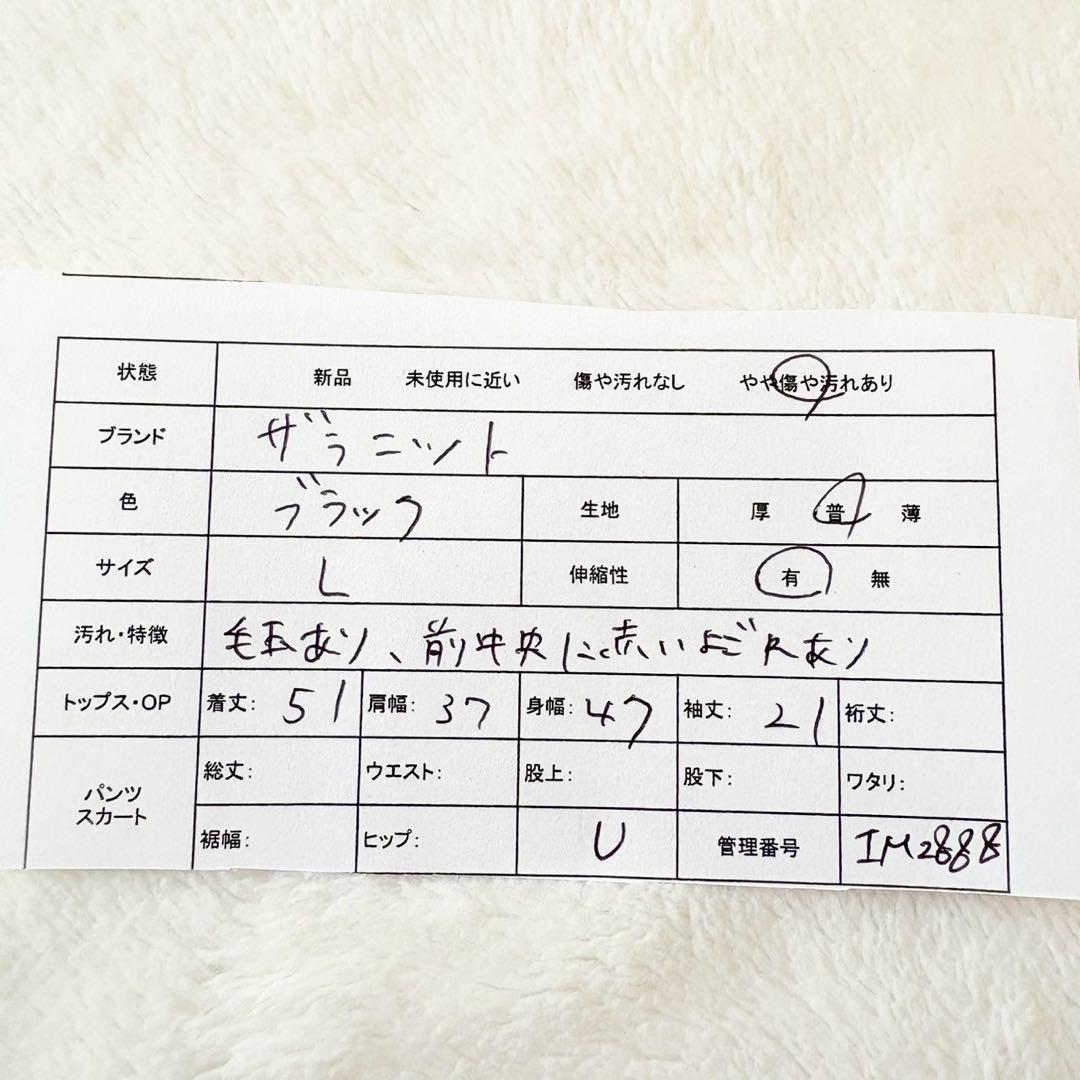 状態 新品 未使用に近い 傷や汚れなし やや傷や汚れあり
ブランド ザラニット
色 ブラック 生地 厚 普 薄
サイズ L 伸縮性 有 無
汚れ・特徴 毛玉あり、前中央に赤いよごれあり
トップス・OP 着丈: 51 肩幅: 37 身幅: 47 袖丈: 21 裄丈:
パンツ
スカート
総丈: ウエスト: 股上: 股下: ワタリ:
裾幅: ヒップ: U 管理番号 IM2888